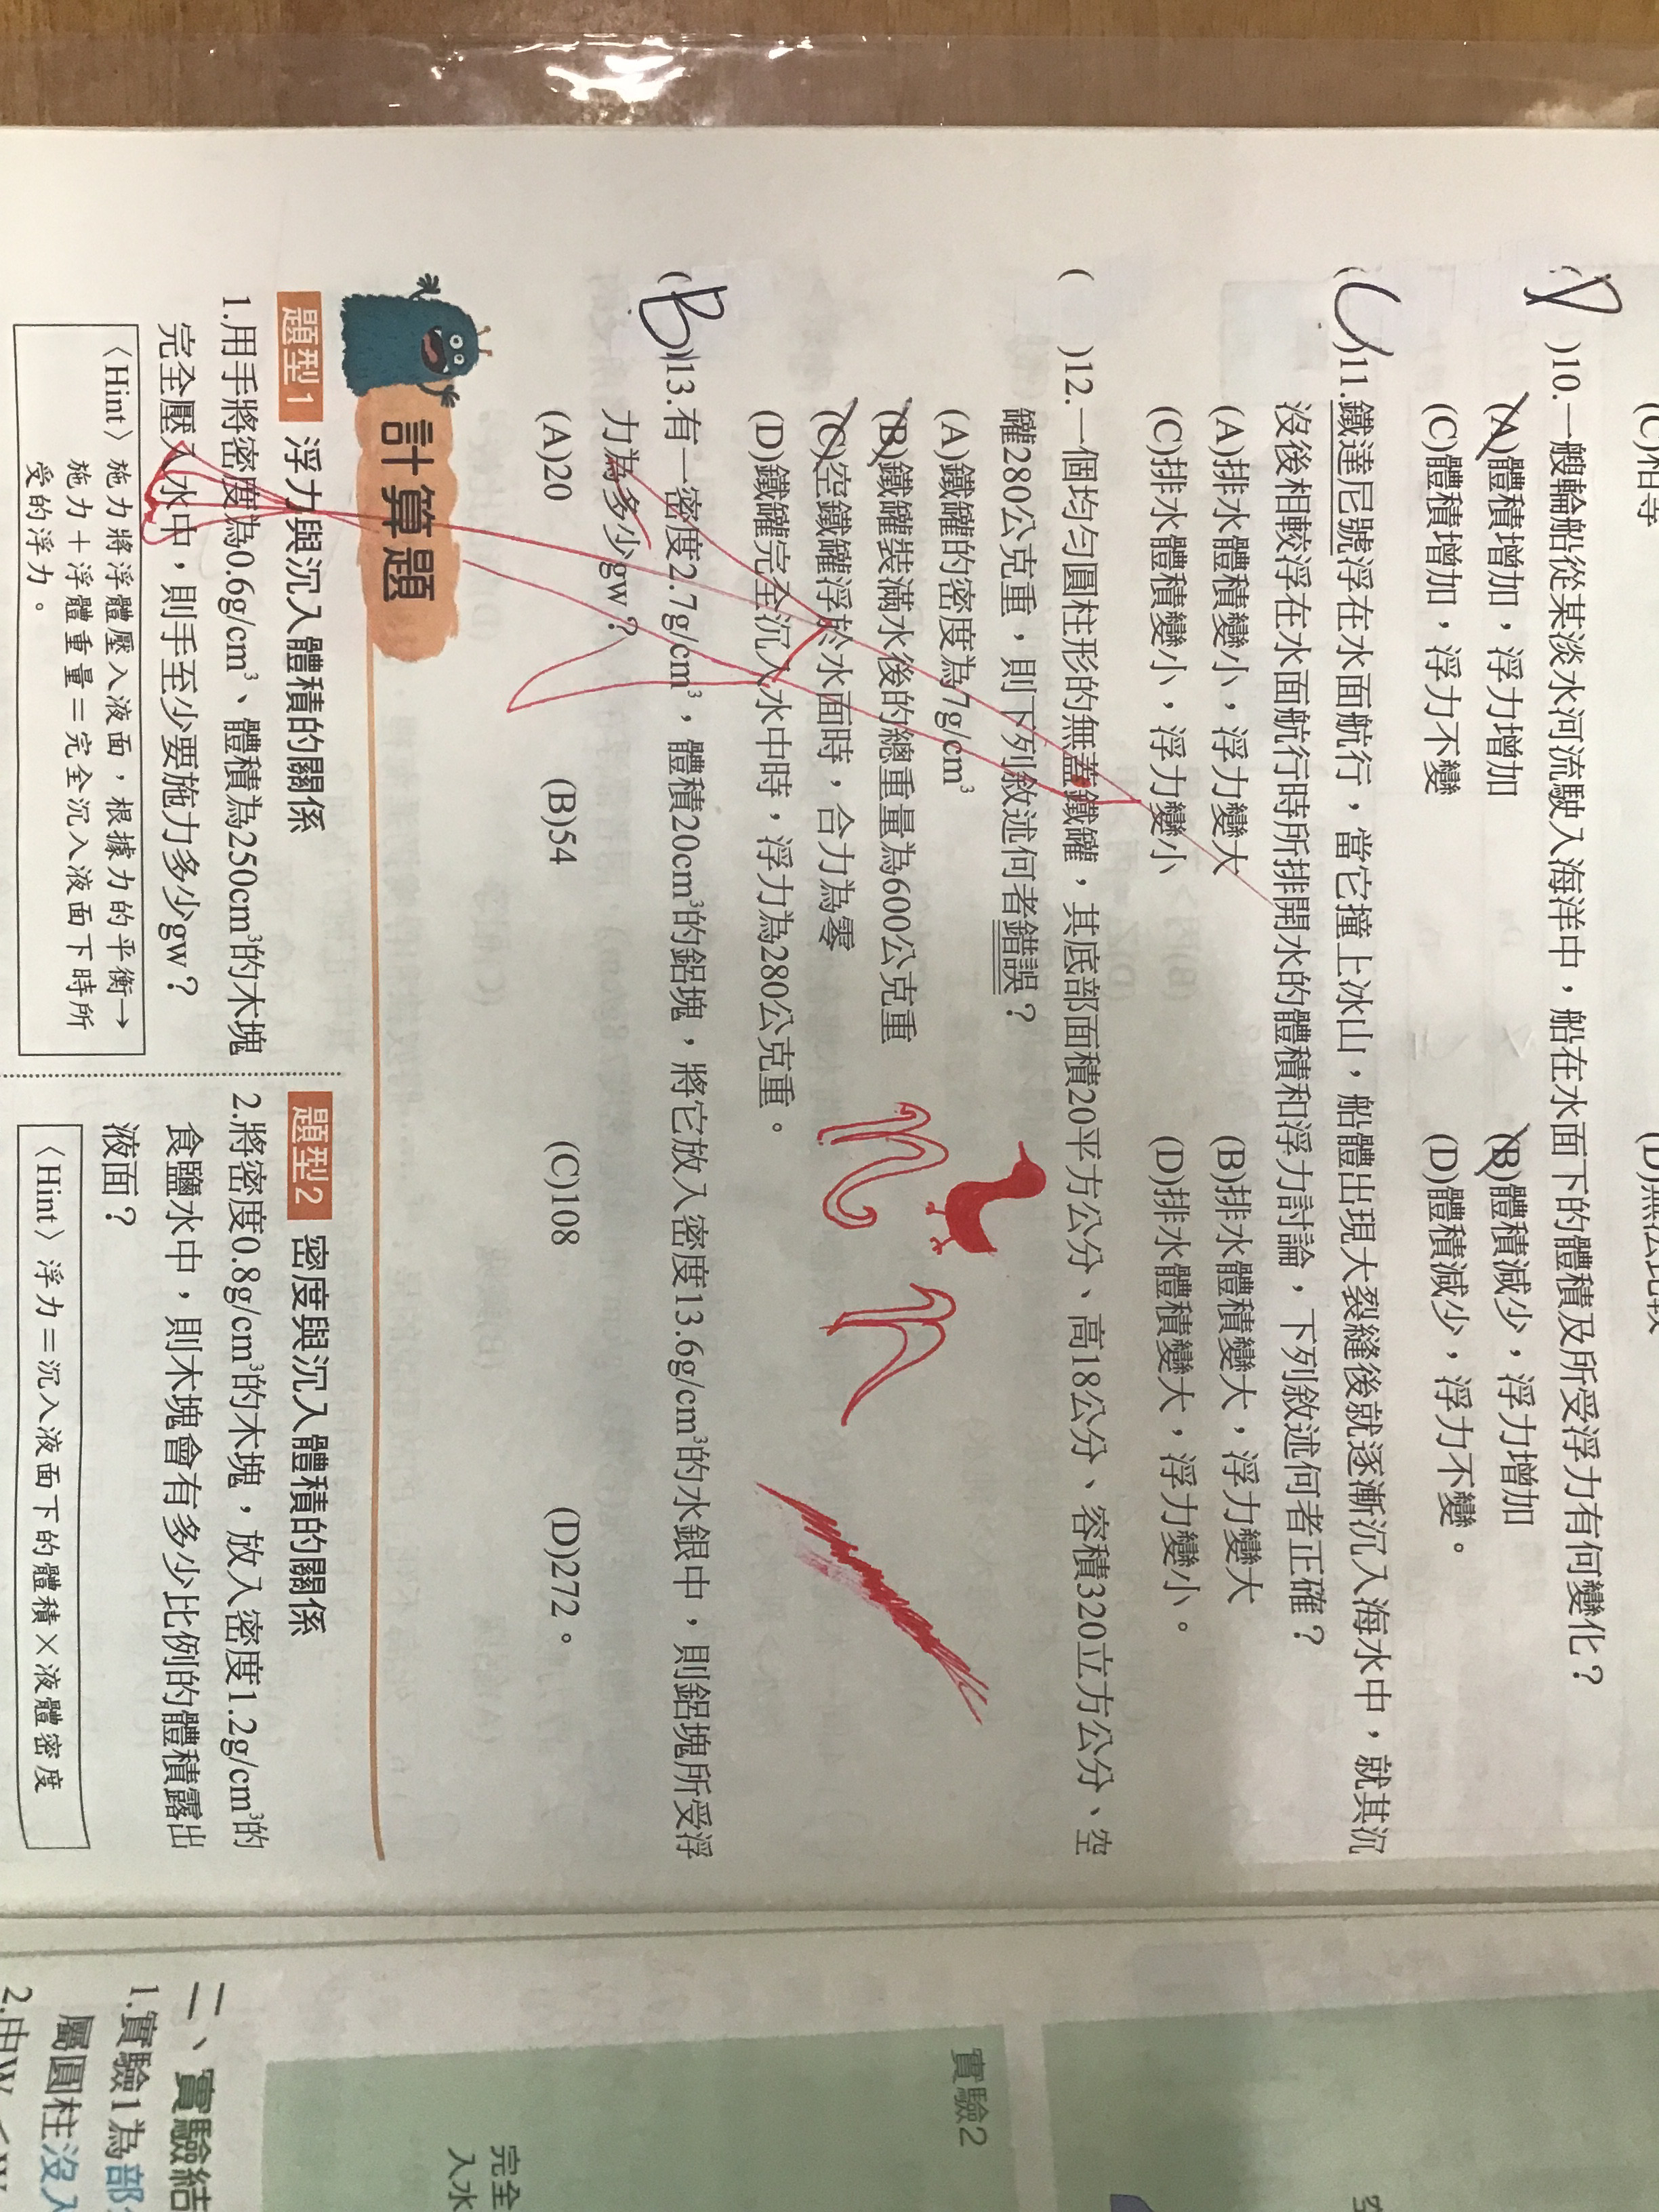 (D)10.一艘輪船從某淡水河流駛入海洋中，船在水面下的體積及所受浮力有何變化？
(A)體積增加，浮力增加 (B)體積減少，浮力增加
(C)體積增加，浮力不變 (D)體積減少，浮力不變。
(C)11.鐵達尼號浮在水面航行，當它撞上冰山，船體出現大裂縫後就逐漸沉入海水中，就其沉
沒後相較浮在水面航行時所排開水的體積和浮力討論，下列敘述何者正確？
(A)排水體積變小，浮力變大 (B)排水體積變大，浮力變大
(C)排水體積變小，浮力變小 (D)排水體積變大，浮力變小。
( )12.一個均勻圓柱形的無蓋鐵罐，其底部面積20平方公分、高18公分、容積320立方公分、空
罐280公克重，則下列敘述何者錯誤？
(A)鐵罐的密度為7g/cm³
(B)鐵罐裝滿水後的總重量為600公克重
(C)空鐵罐浮於水面時，合力為零
(D)鐵罐完全沉入水中時，浮力為280公克重。
(B)13.有一密度2.7g/cm³，體積20cm³的鋁塊，將它放入密度13.6g/cm³的水銀中，則鋁塊所受浮
力為多少gw？
(A)20 (B)54 (C)108 (D)272。
計算題
題型1 浮力與沉入體積的關係
1.用手將密度為0.6g/cm³、體積為250cm³的木塊
完全壓入水中，則手至少要施力多少gw？
〈Hint〉施力將浮體壓入液面，根據力的平衡→
施力＋浮體重量＝完全沉入液面下時所
受的浮力。
題型2 密度與沉入體積的關係
2.將密度0.8g/cm³的木塊，放入密度1.2g/cm³的
食鹽水中，則木塊會有多少比例的體積露出
液面？
〈Hint〉浮力＝沉入液面下的體積×液體密度
實驗2
完全
入水
二、實驗結
1.實驗1為部
屬圓柱沒入